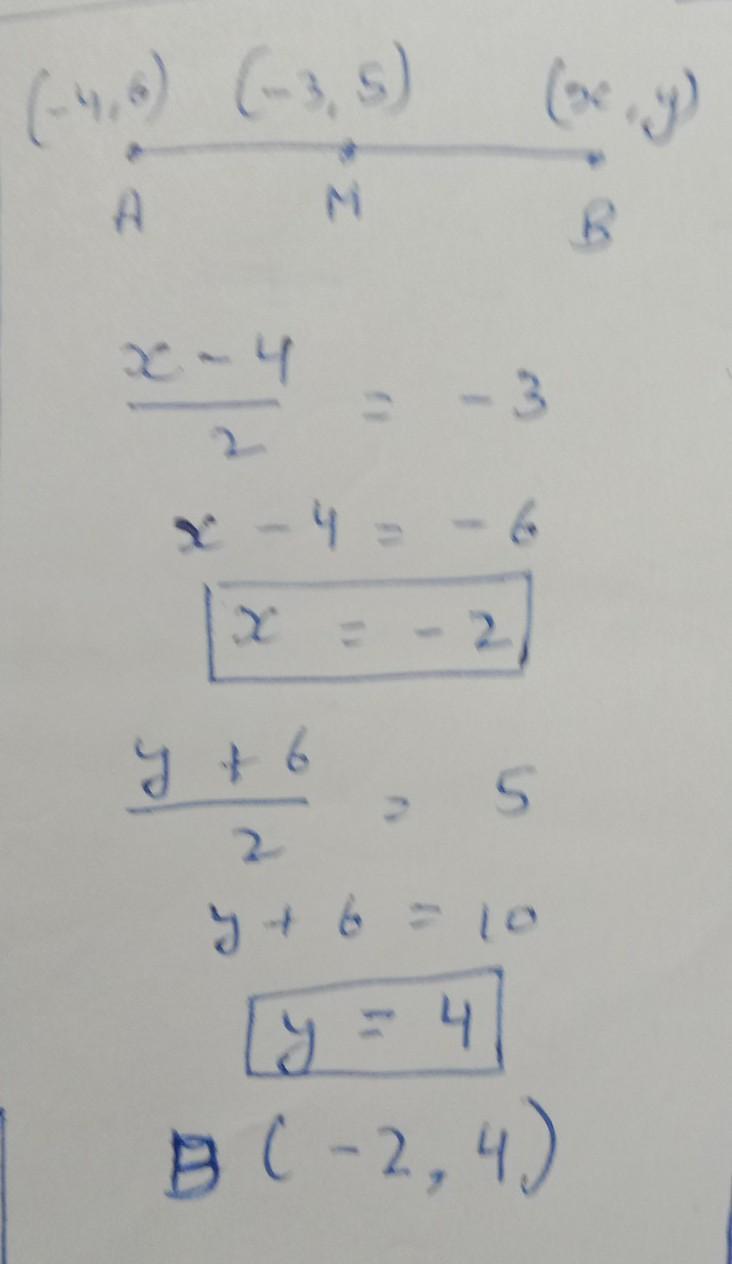 (-4,6) (-3,5) (x,y)
A M B
x - 4
2
= - 3
x - 4 = - 6
x = - 2
y + 6
2
= 5
y + 6 = 10
y = 4
B (-2, 4)